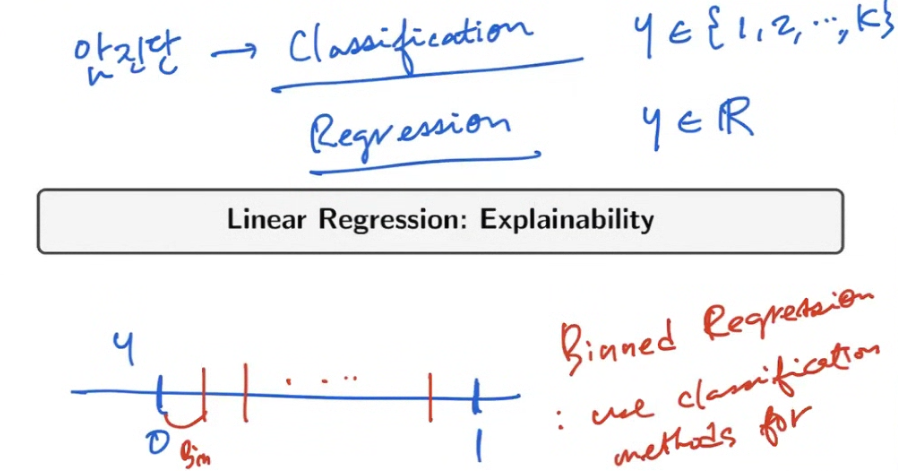 암진단 → Classification y ∈ {1, 2, ⋯, K}
Regression y ∈ ℝ
Linear Regression: Explainability
y
0 1
Bin
Binned Regression
: use classification
methods for